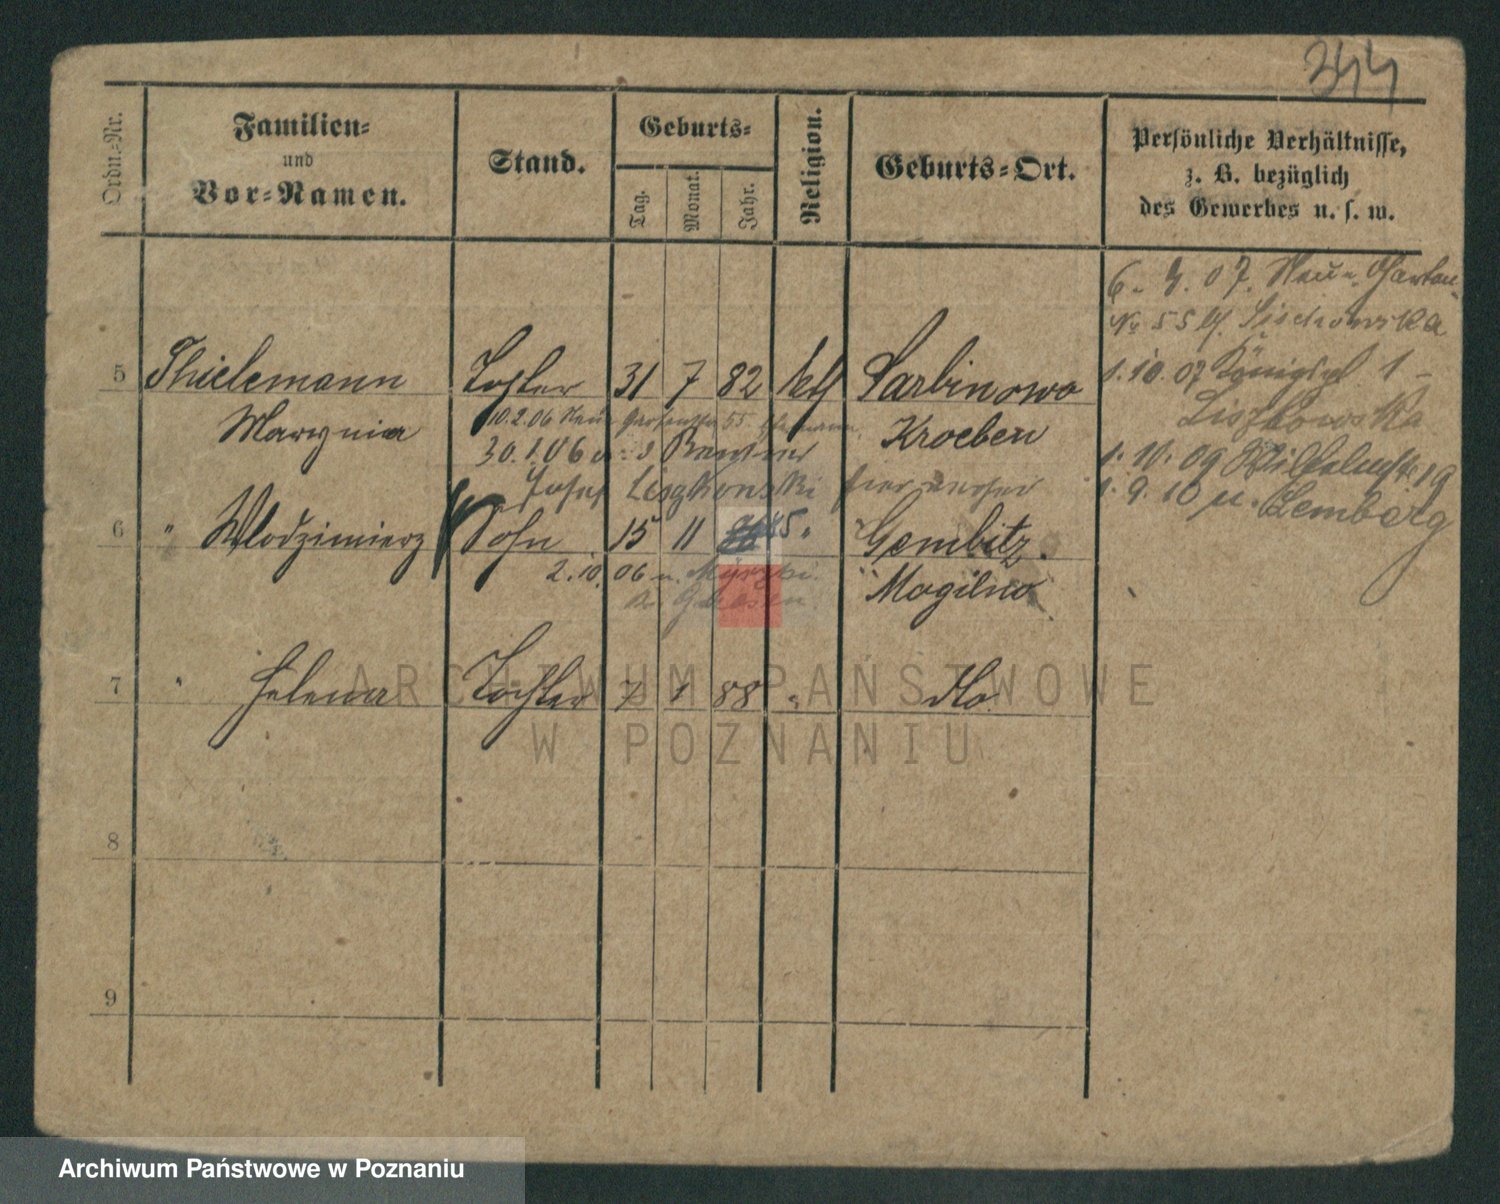 344
Ordn.-Nr.
Familien-
und
Vor-Namen.
Stand.
Geburts-
Tag.
Monat.
Jahr.
Religion.
Geburts-Ort.
Persönliche Verhältnisse,
z. B. bezüglich
des Gewerbes u. s. w.
6. 4. 07. Neue Garten
No 55 Lischowska
5 Thielemann Tochter 31 7 82 kth Sarbinowo
1. 10. 07 Königspl 1
10.2.06 Neue Gartenstr 55
Marynia Kroeben
Liszkowska
30.1.06
1. 10. 09 Wilhelmstr 19
Josef Liszkowski
1. 9. 10 u. Lemberg
6 " Wlodzimierz Sohn 15 11 85 " Gembitz.
2. 10. 06 n.
Mogilno
7 " Helena Tochter 7 1 88 " dto
8
9
ARCHIWUM PAŃSTWOWE
W POZNANIU
Archiwum Państwowe w Poznaniu